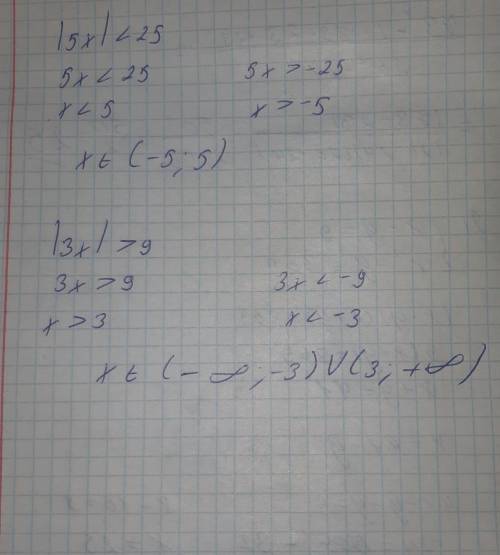 |5x| < 25
5x < 25 5x > -25
x < 5 x > -5
x ∈ (-5; 5)
|3x| > 9
3x > 9 3x < -9
x > 3 x < -3
x ∈ (-∞; -3) ∪ (3; +∞)